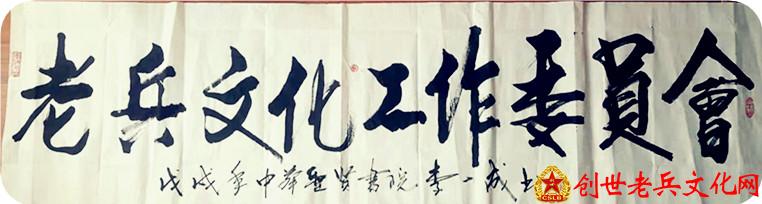 老兵文化工作委員會
戊戌年中華聖賢書院李一成书
CSLB
创世老兵文化网